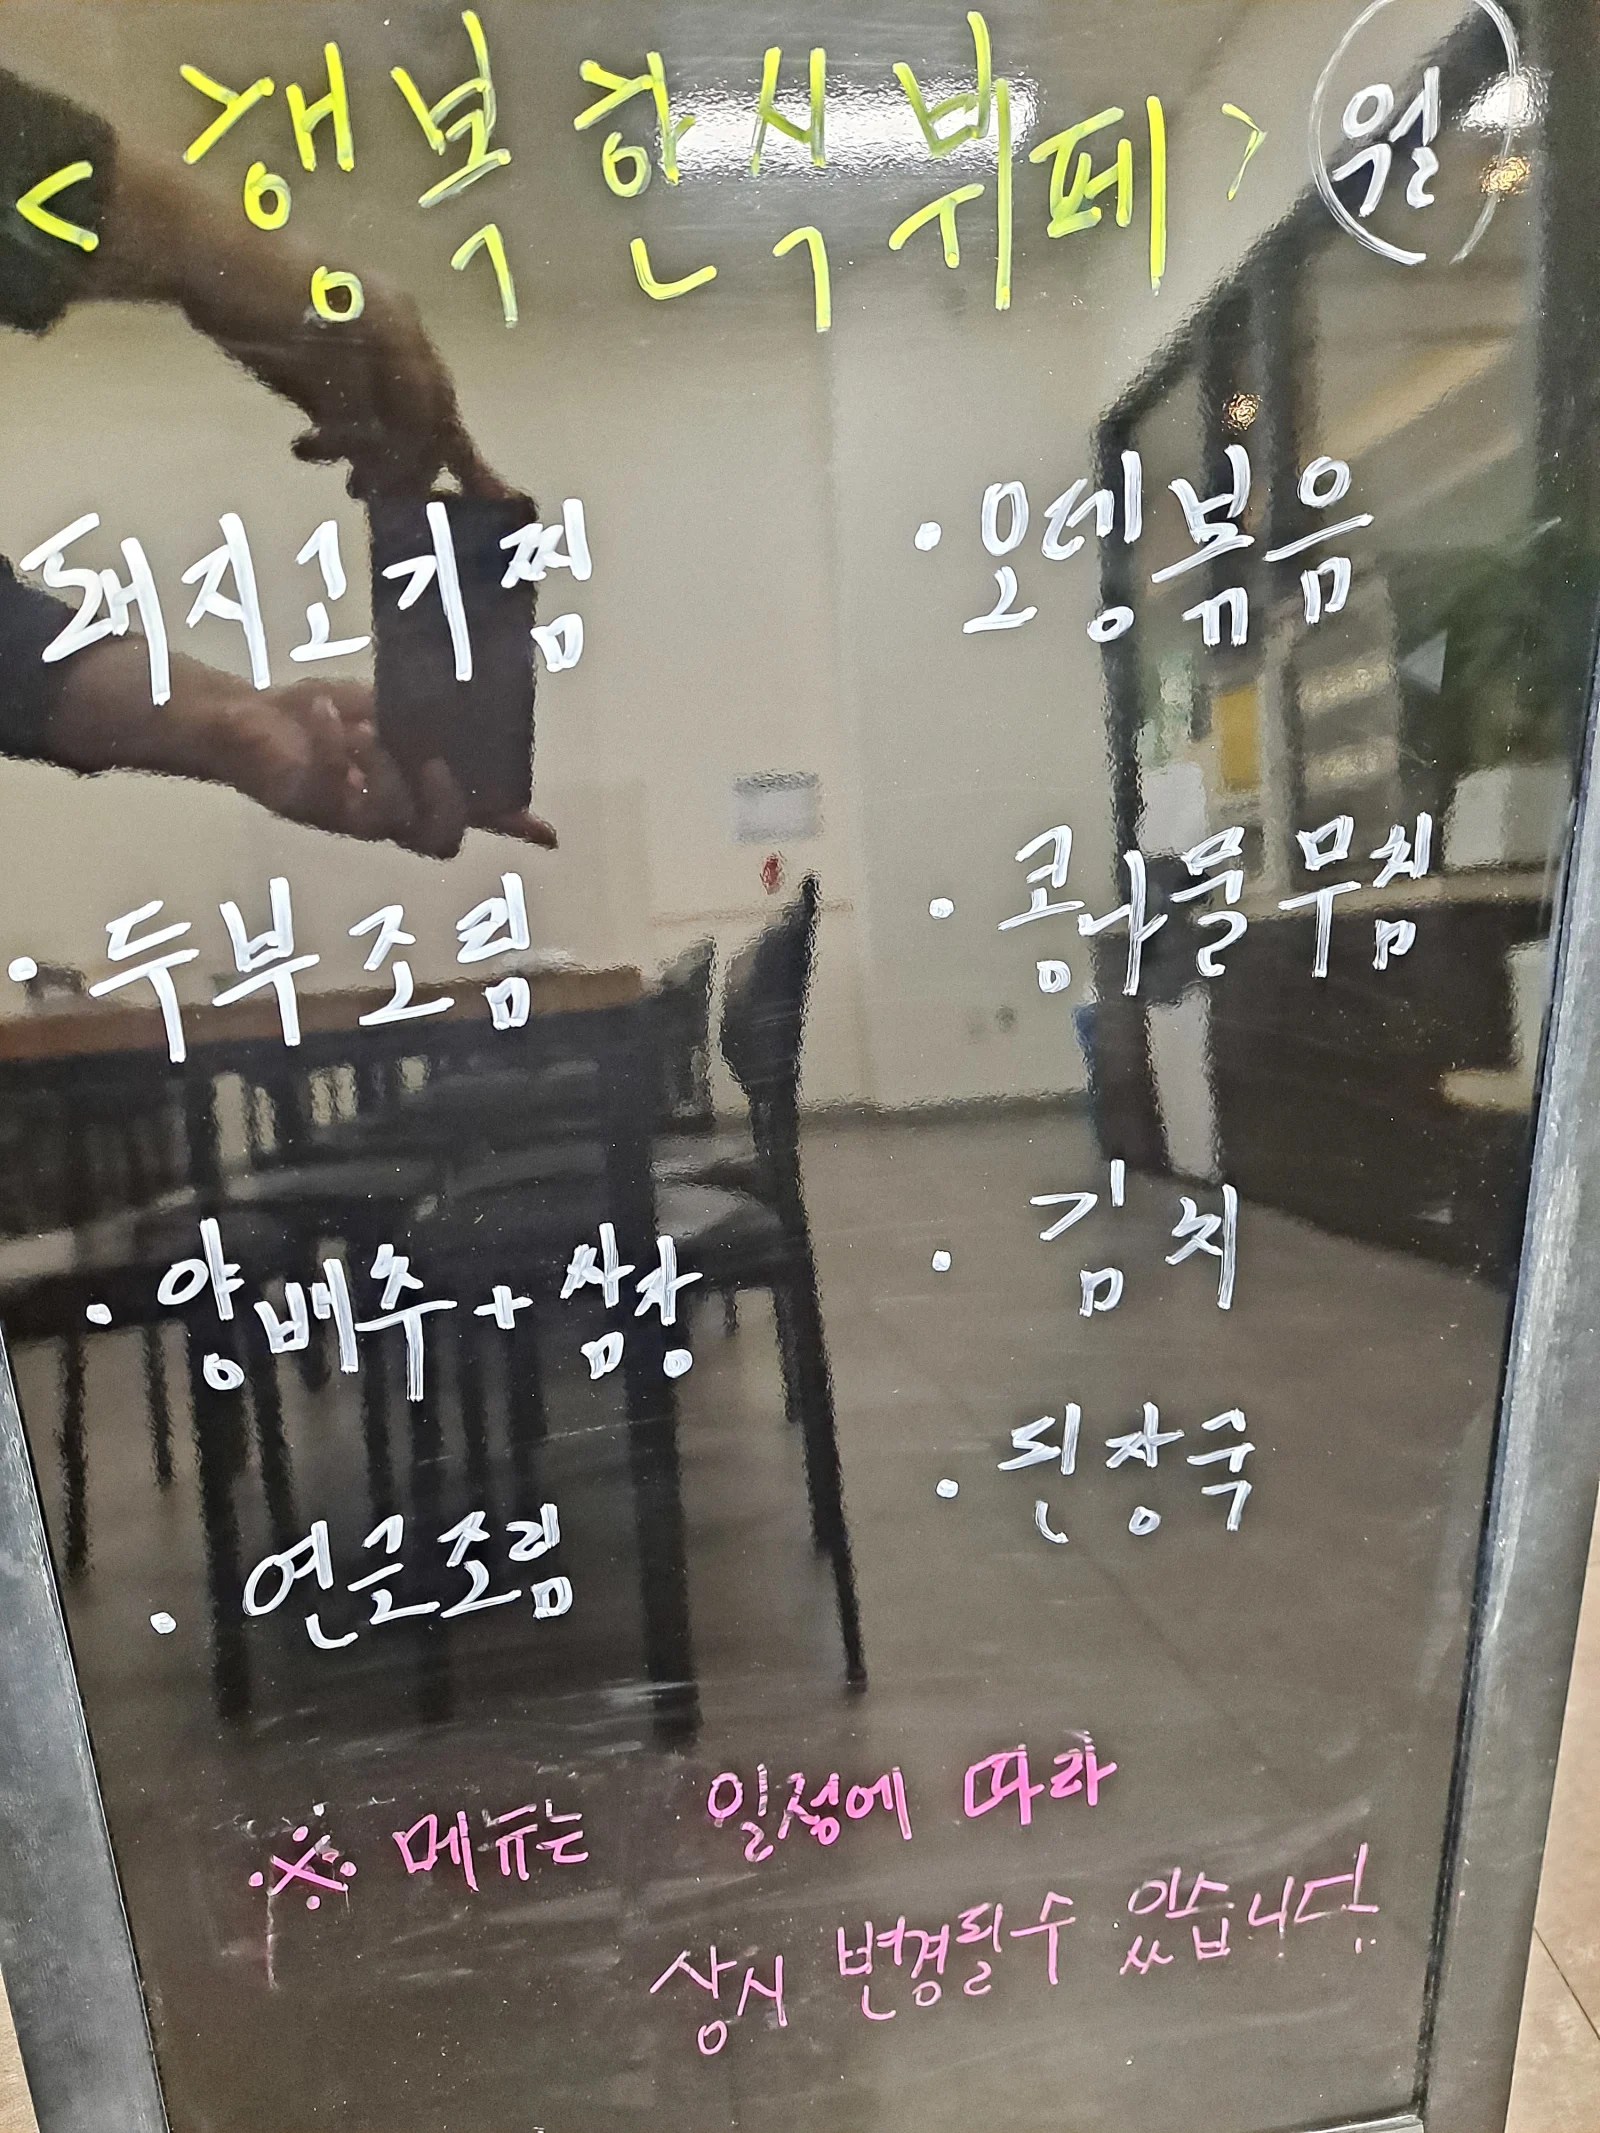 <행복한식뷔페> 월
돼지고기찜
· 두부조림
· 양배추+쌈장
· 연근조림
· 오뎅볶음
· 콩나물무침
· 김치
· 된장국
※ 메뉴는 일정에 따라
상시 변경될수 있습니다.